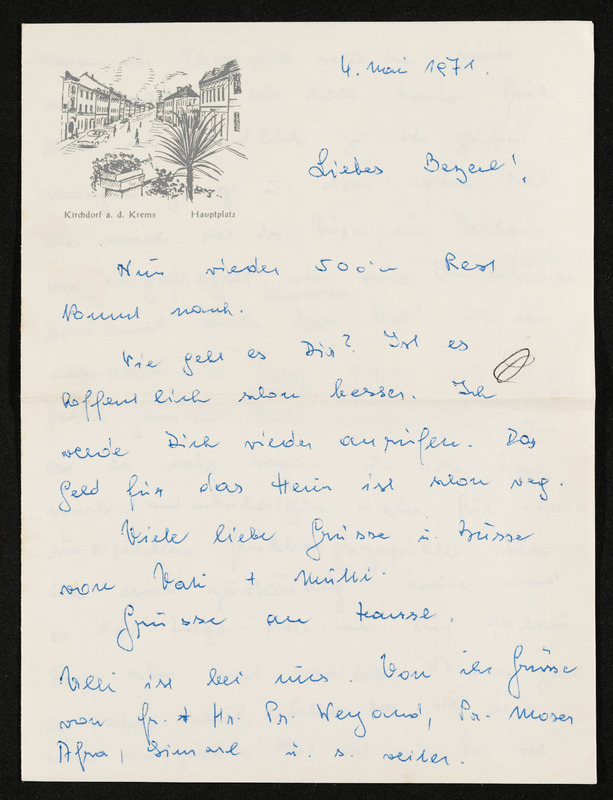 4. Mai 1971.
Liebes Bezerl!
Kirchdorf a. d. Krems Hauptplatz
Nun wieder 500.- Rest
kommt nach.
Wie geht es Dir? Ist es
hoffentlich schon besser. Ich
werde Dich wieder anrufen. Das
Geld für das Heim ist schon weg.
Viele liebe Grüsse u. Küsse
von Vati + Mutti.
Grüsse an Hausse.
ist bei uns. Von ihr Grüsse
von Fr. + Hr. Pr. Weyand, Pr. Moser
Afra, u. s. weiter.